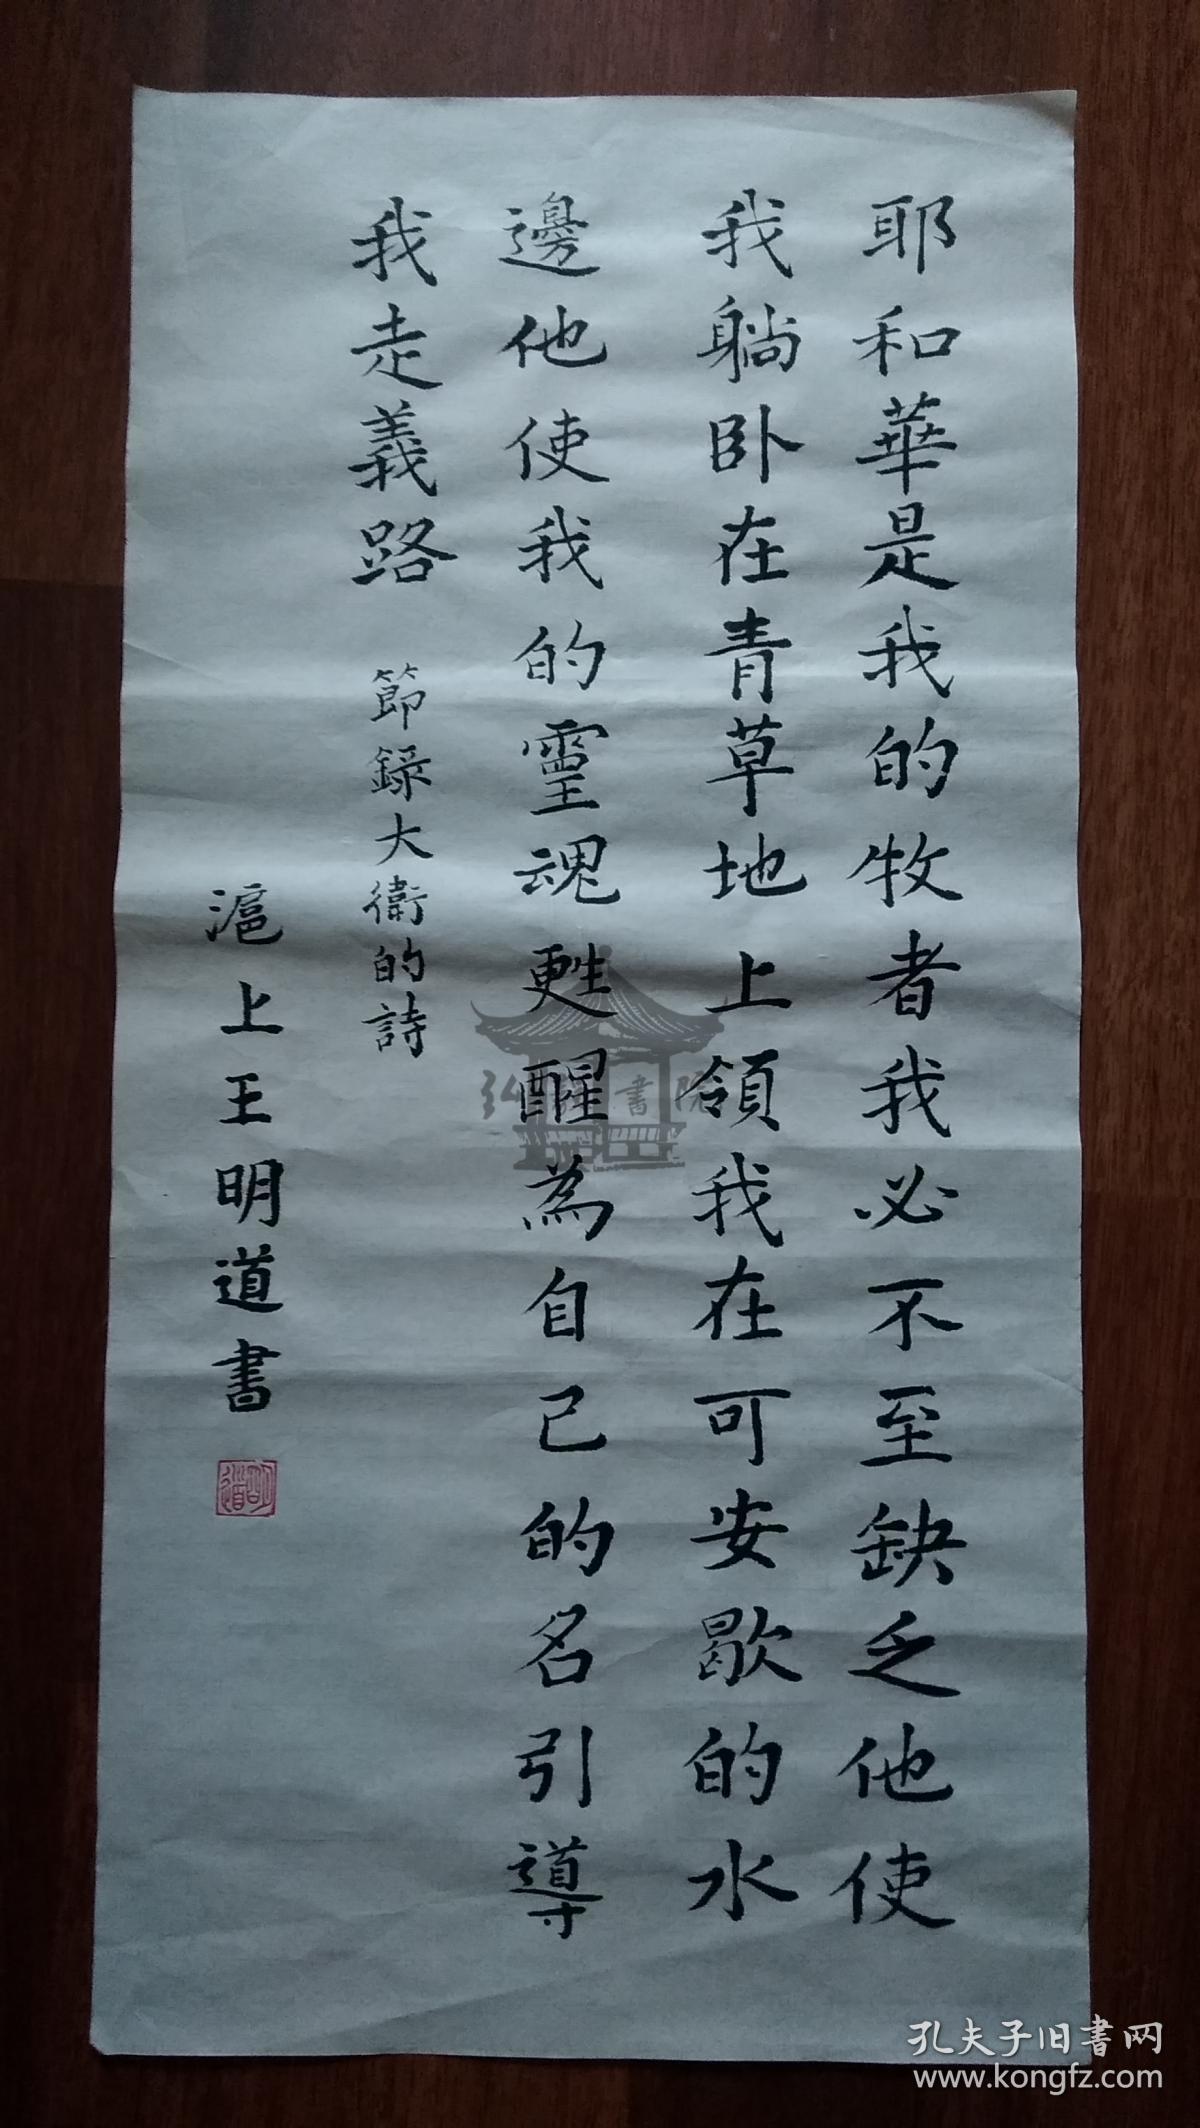 耶和華是我的牧者我必不至缺乏他使
我躺卧在青草地上領我在可安歇的水
邊他使我的靈魂甦醒為自己的名引導
我走義路
節錄大衛的詩
滬上王明道書
孔夫子旧書网
www.kongfz.com